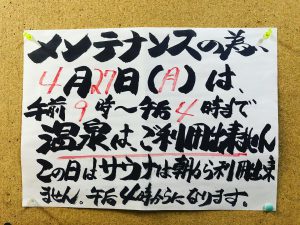 メンテナンスの為、
4月27日(月)は、
午前9時〜午后4時まで
温泉は、ご利用出来ません
この日はサウナは朝から利用出来
ません。午后4時からになります。